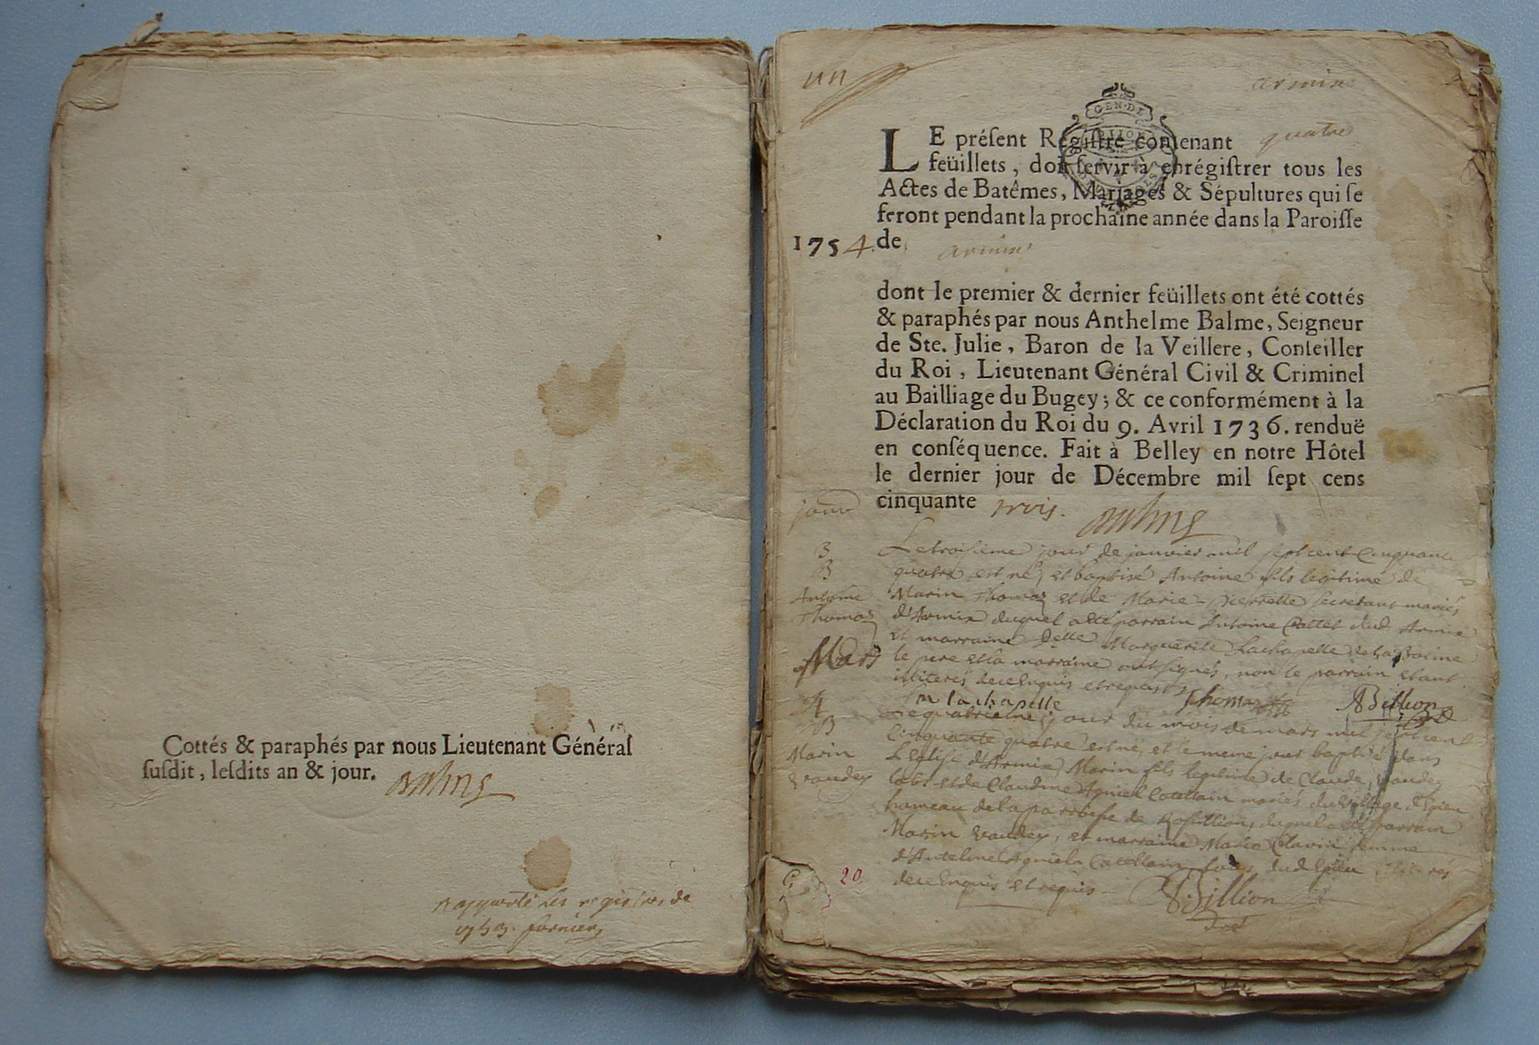 Cottés & paraphés par nous Lieutenant Général
susdit, lesdits an & jour.
rapporté les registres de
1753.
un
armix
GEN. DE
DIJON
LE présent Régistre contenant quatre
feüillets, doit servir à enrégistrer tous les
Actes de Batêmes, Mariages & Sépultures qui se
feront pendant la prochaine année dans la Paroisse
1754. de armix
dont le premier & dernier feüillets ont été cottés
& paraphés par nous Anthelme Balme, Seigneur
de Ste. Julie, Baron de la Veillere, Conseiller
du Roi, Lieutenant Général Civil & Criminel
au Bailliage du Bugey; & ce conformément à la
Déclaration du Roi du 9. Avril 1736. renduë
en conséquence. Fait à Belley en notre Hôtel
le dernier jour de Décembre mil sept cens
cinquante trois.
3
B
Antoine
Thomas
Le troisieme jour de janvier mil sept cent cinquante
quatre est né, et baptisé Antoine fils legitime de
Marin Thomas et de Marie secretant mariés
d'Armix duquel a été parrain Antoine dud Armix
et marraine Delle Marguerite Lachapelle
le pere et la marraine ont signés, non le parrain etant
illiterés de ce enquis et
m lachapelle Thomas Billion
Mars
4
B
Marin
Le quatrieme jour du mois de mars mil sept cent
cinquante quatre est né, et le meme jour baptisé dans
L'Eglise d'Armix Marin fils legitime de Claude
et de Claudine mariés du village
hameau de la parroisse de Rossillion, duquel a été parrain
Marin et marraine femme
d'Antelme
de ce enquis et requis
Billion
20